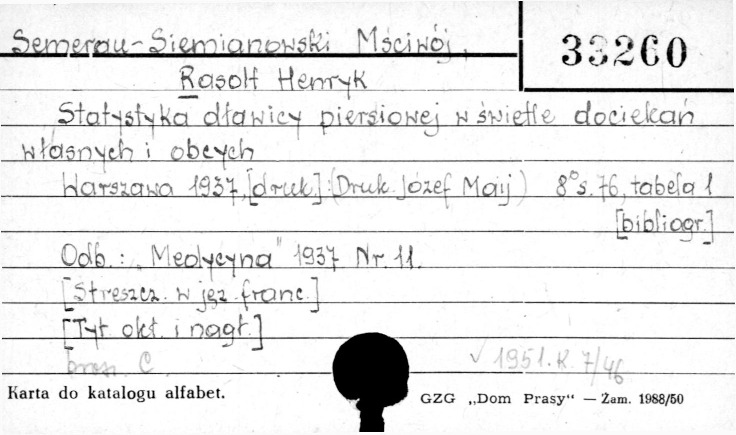 Semerau-Siemianowski Mściwój,
33260
Rasolt Henryk
Statystyka dławicy piersiowej w świetle dociekań
własnych i obcych
Warszawa 1937, [druk]: (Druk. Józef Maij) 8° s. 76, tabela 1
[bibliogr.]
Odb.: „Medycyna" 1937 Nr. 11.
[Streszcz. w jęz. franc.]
[Tyt. okł. i nagł.]
brosz. C.
√ 1951. K. 7/46
Karta do katalogu alfabet.
GZG „Dom Prasy“ — Zam. 1988/50